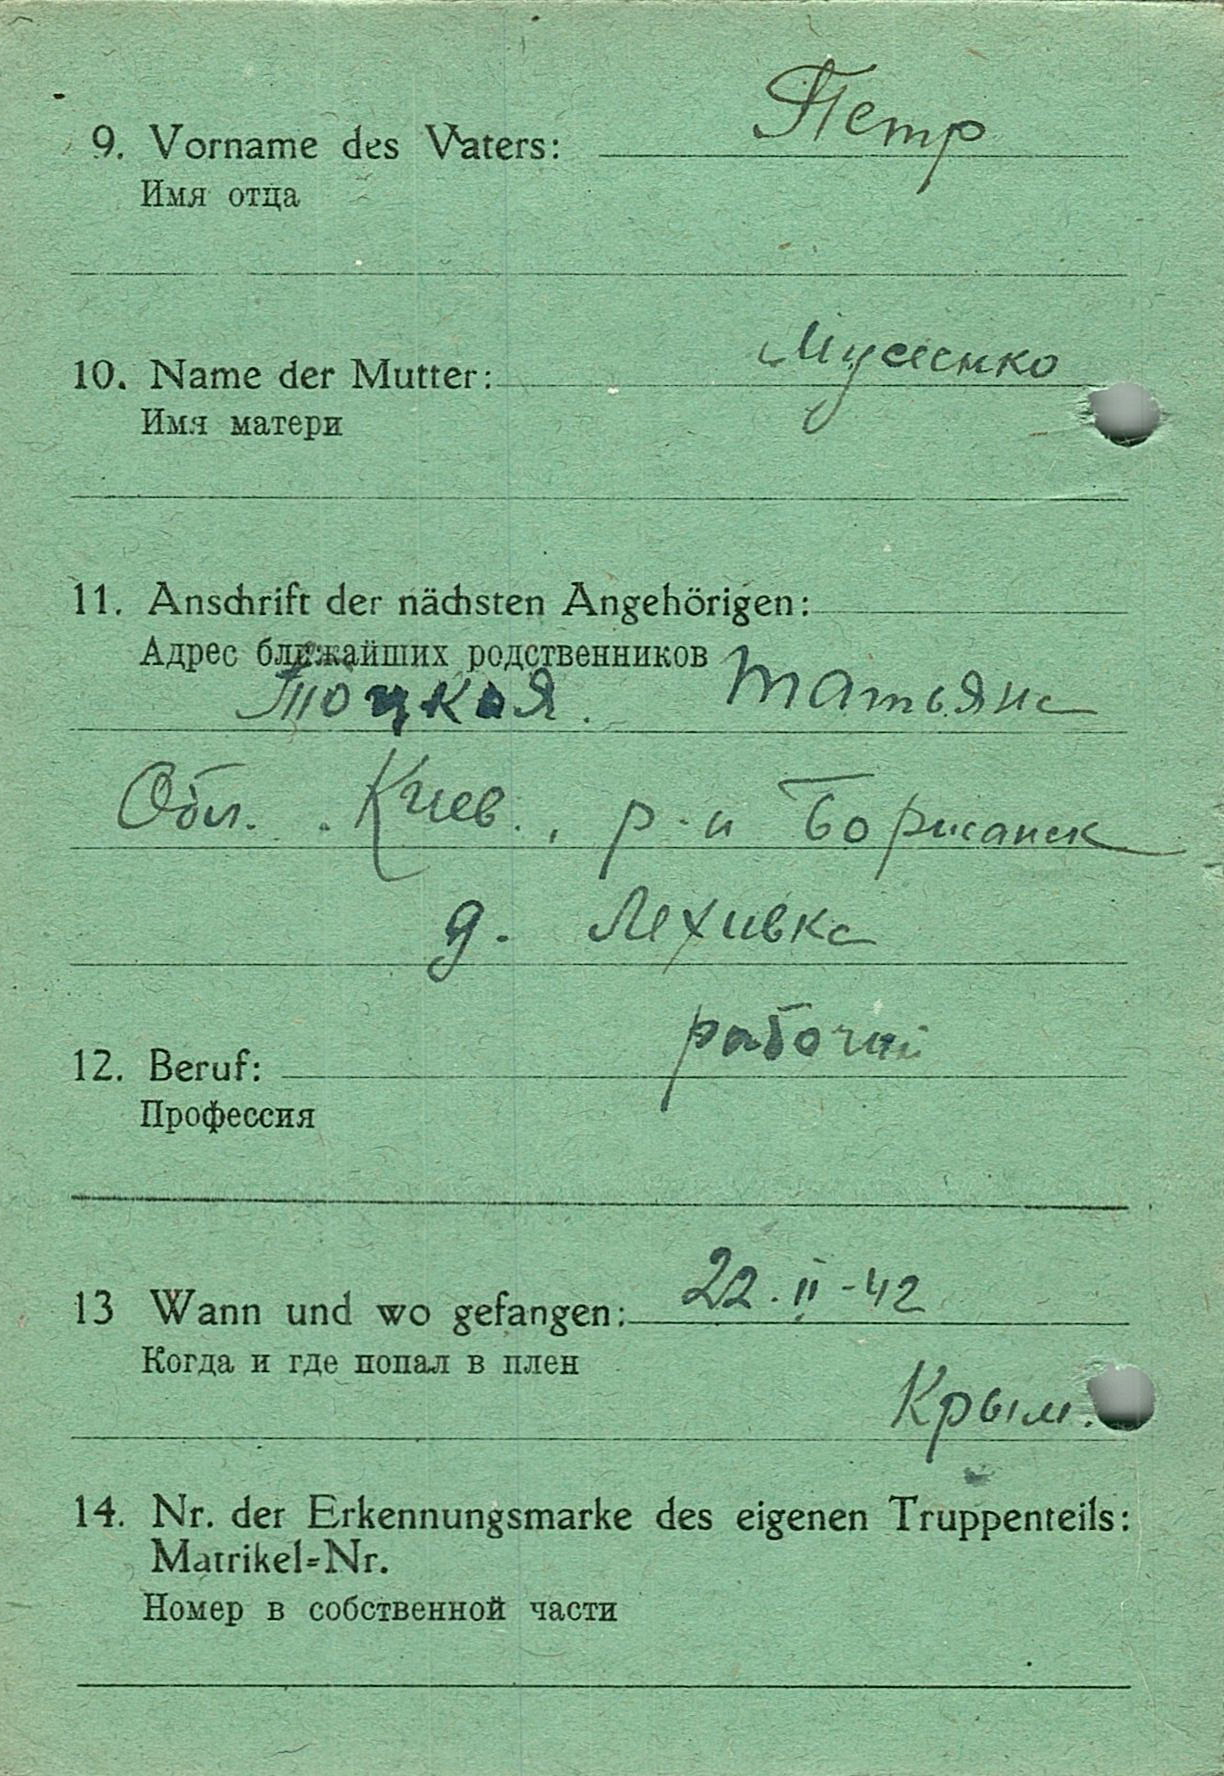 9. Vorname des Vaters: Петр
Имя отца
10. Name der Mutter: Мусиенко
Имя матери
11. Anschrift der nächsten Angehörigen:
Адрес ближайших родственников
Тоцкая. Татьяна
Обл. Киев., р-н Борисанск
д. Лехивка
12. Beruf: рабочий
Профессия
13 Wann und wo gefangen: 22. II -42
Когда и где попал в плен
Крым.
14. Nr. der Erkennungsmarke des eigenen Truppenteils:
Matrikel=Nr.
Номер в собственной части